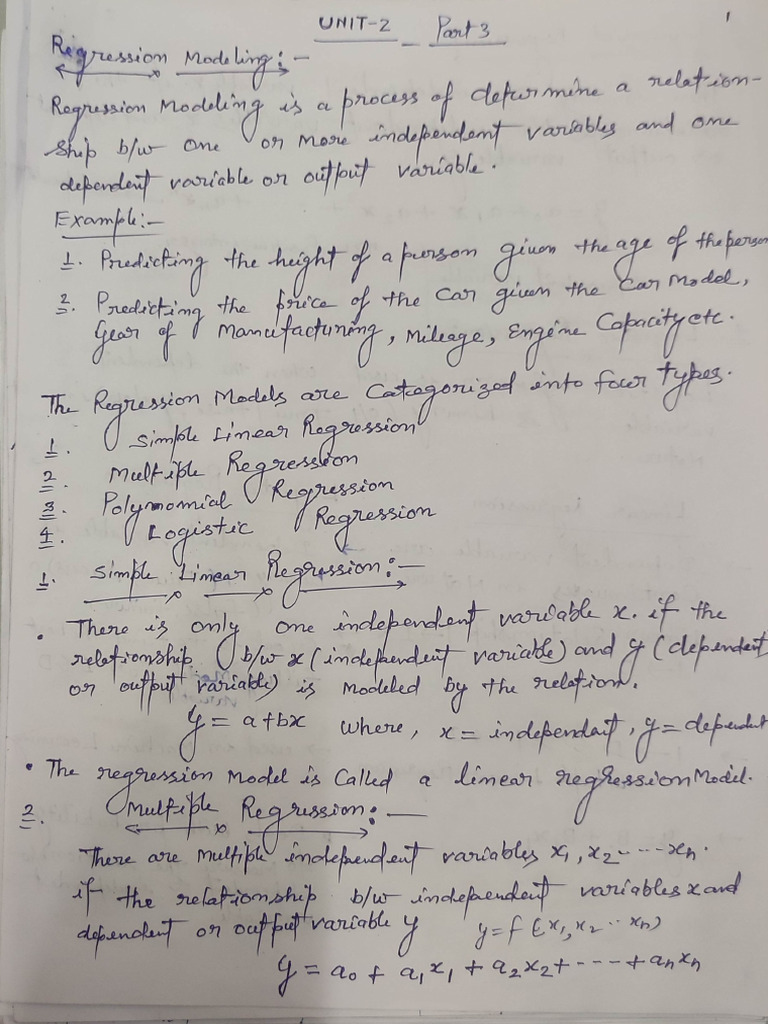 UNIT-2 - Part 3
1
Regression Modeling:-
Regression Modeling is a process of determine a relation-
ship b/w one or more independent variables and one
dependent variable or output variable.
Example:-
1. Predicting the height of a person given the age of the person
2. Predicting the price of the car given the car Model,
Gear of Manufacturing, Mileage, Engine Capacity etc.
The Regression Models are Categorized into four types.
1. Simple Linear Regression
2. Multiple Regression
3. Polynomial Regression
4. Logistic Regression
1. Simple Linear Regression:-
• There is only one independent variable x. if the
relationship b/w x (independent variable) and y (dependent
or output variable) is modeled by the relation.
y = a+bx where, x = independent, y = dependent
• The regression Model is Called a linear regression Model.
2. Multiple Regression:-
There are multiple independent variables x1, x2 ----- xn.
if the relationship b/w independent variables x and
dependent or output variable y y = f (x1, x2 .. xn)
y = a0 + a1x1 + a2x2 + ---- + anxn